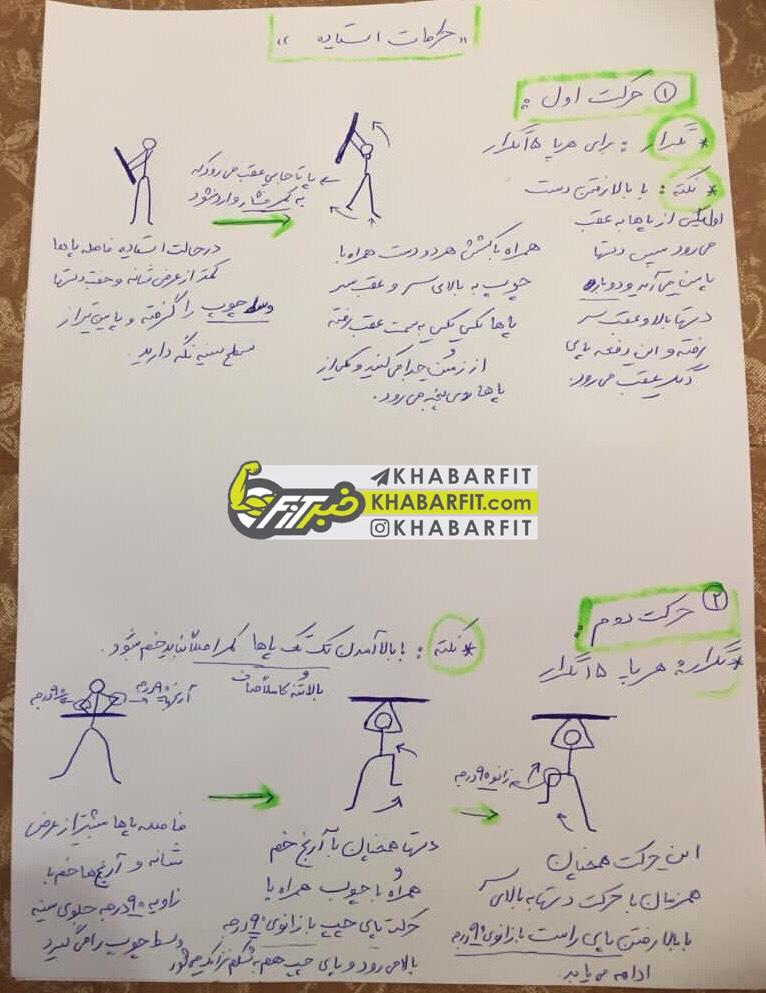 «حرکات ایستاده»
① حرکت اول:
* تکرار: برای هر پا ۱۵ تکرار
* نکته: با بالا رفتن دست
اول یکی از پاها به عقب
می رود سپس دستها
پایین می آید و دوباره
دستها بالا و عقب سر
رفته و این دفعه پای
دیگر عقب می رود.
پا تا جایی عقب می رود که
به کمر فشار وارد نشود
همراه با کشش هر دو دست همراه با
چوب به بالای سر و عقب سر
پاها یکی یکی به سمت عقب رفته
از زمین جدا می کنید و یکی از
پاها روی پنجه می رود.
در حالت ایستاده فاصله پاها
کمتر از عرض شانه و جفت دستها
وسط چوب را گرفته و پایین تر از
سطح سینه نگه دارید.
خبر FiT
KHABARFIT
KHABARFIT.com
KHABARFIT
② حرکت دوم:
* تکرار: هر پا ۱۵ تکرار
* نکته: با بالا آمدن تک تک پاها کمر اصلاً نباید خم شود.
بالاتنه کاملاً صاف
آرنج ۹۰ درجه
۹۰ درجه
زانو ۹۰ درجه
این حرکت همچنان
همزمان با حرکت دستها به بالای سر
با بالا رفتن پای راست با زانوی ۹۰ درجه
ادامه می یابد.
دستها همچنان با آرنج خم
همراه با چوب همراه با
حرکت پای چپ با زانوی ۹۰ درجه
بالا می رود و پای چپ هم به شکم نزدیک می شود
فاصله پاها بیشتر از عرض
شانه و آرنج ها خم با
زاویه ۹۰ درجه جلوی سینه
وسط چوب را می گیرد